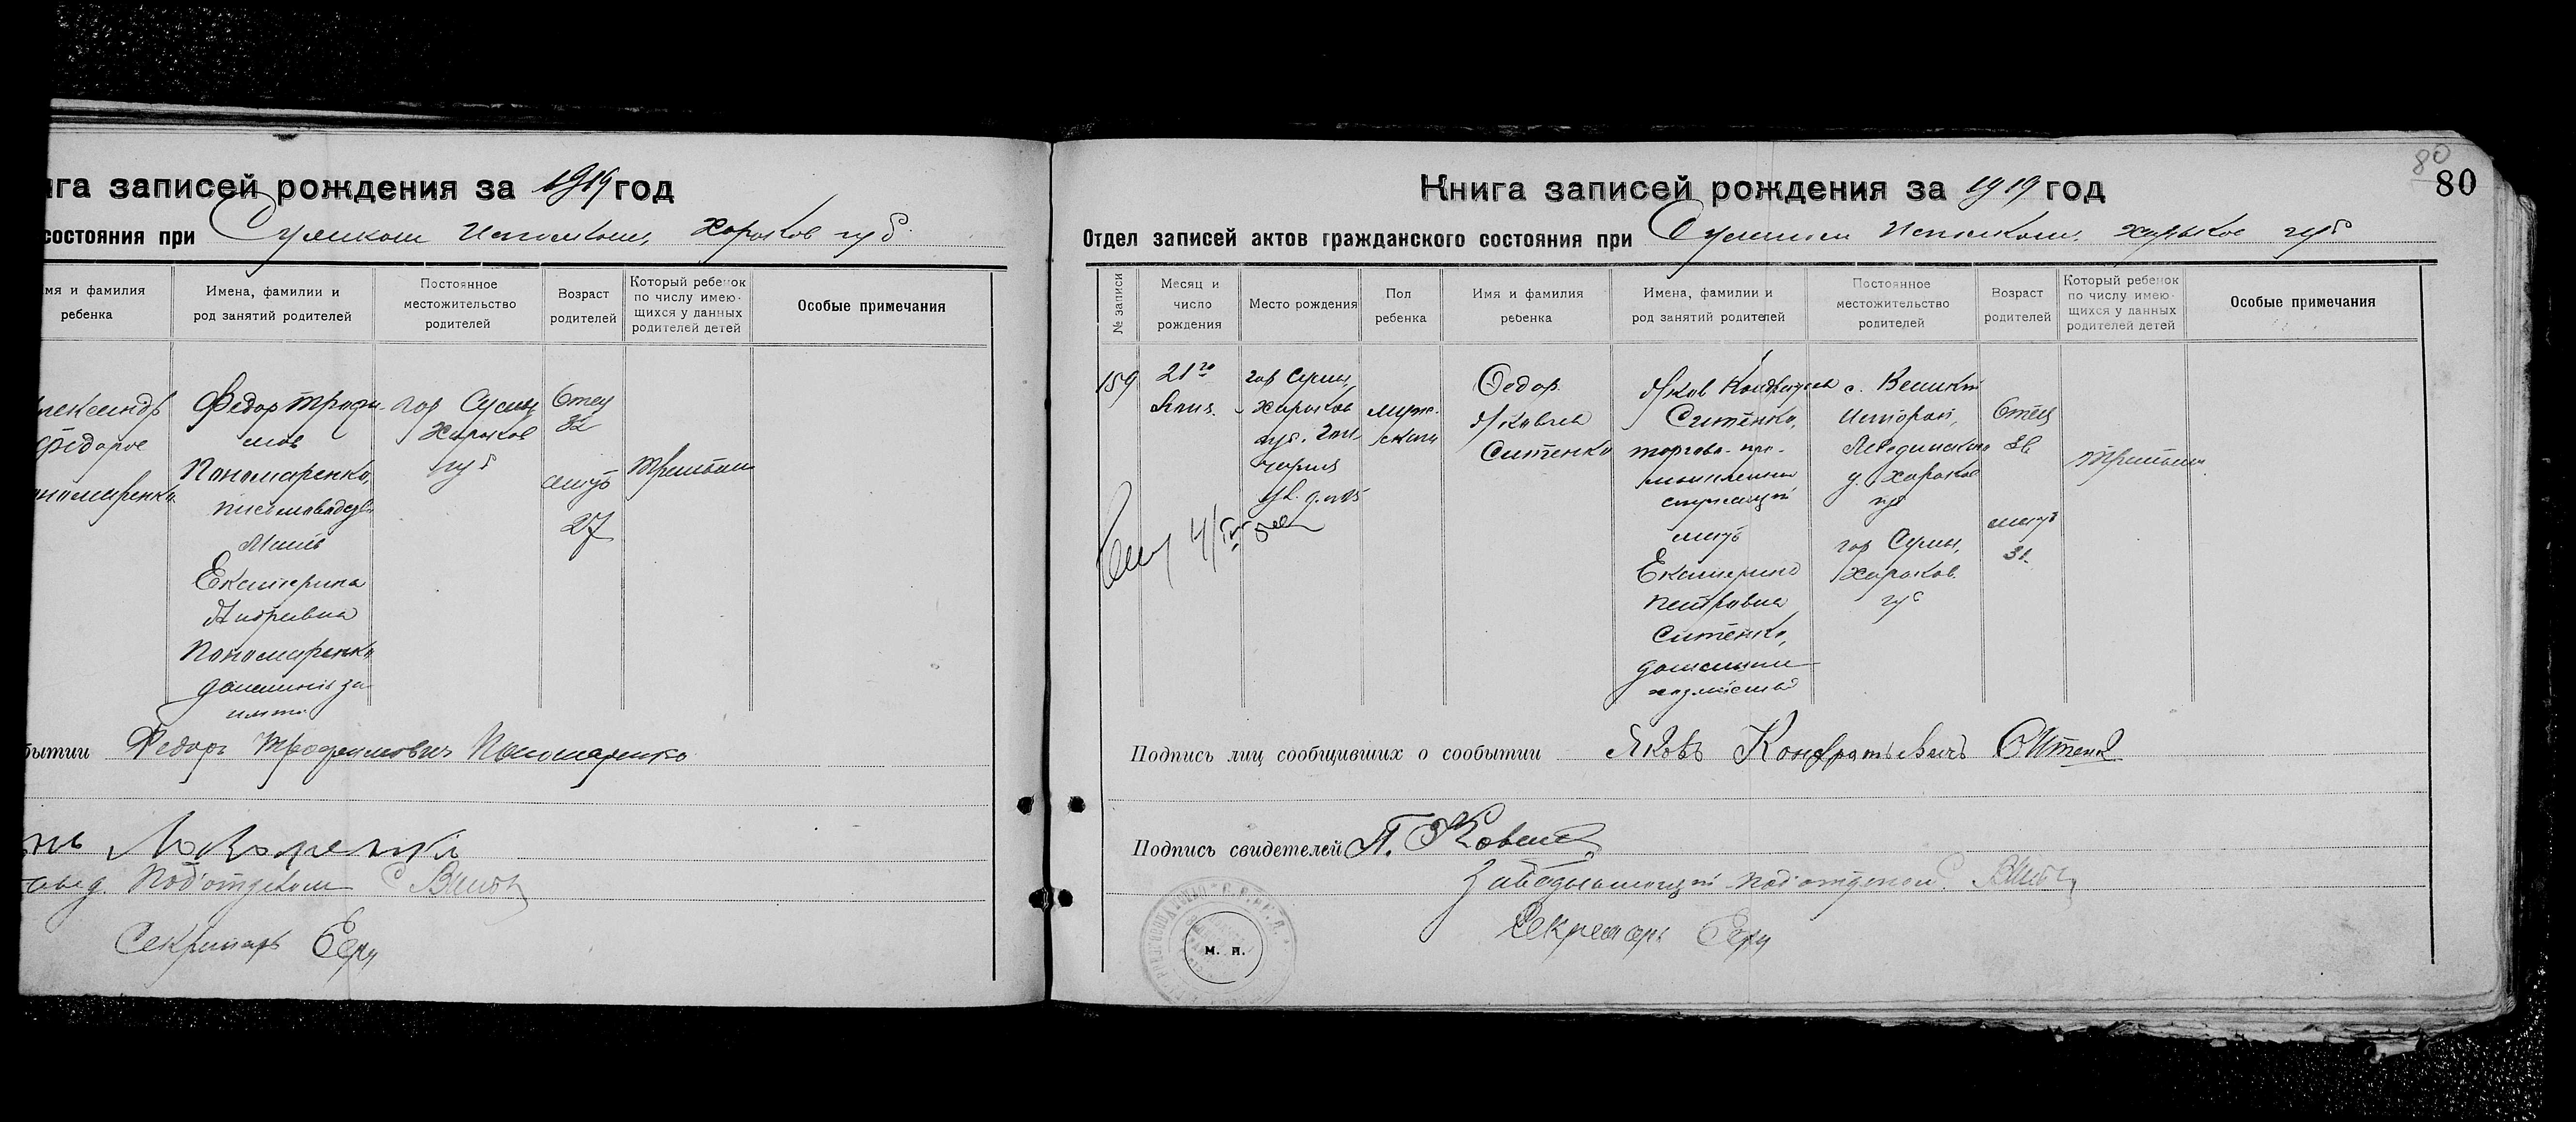 нига записей рождения за 1919 год
состояния при Сумском Исполкоме, Харьков губ
мя и фамилия ребенка
Имена, фамилии и род занятий родителей
Постоянное местожительство родителей
Возраст родителей
Который ребенок по числу имею- щихся у данных родителей детей
Особые примечания
лександр
Федоров
ономаренко
Федор Трофи-
мов
Пономаренко,
письмоводит
Мать
Екатерина
Андреевна
Пономаренко
домашнія за-
нятія
гор Сумы
Харьков
губ
Отец
32
мать
27
Третьим
бытии Федоръ Трофимовичъ Пономаренко
Завед. Подотделом
Секретарь
80
80
Книга записей рождения за 1919 год
Отдел записей актов гражданского состояния при Сумском Исполкоме, Харьков губ
№ записи
Месяц и число рождения
Место рождения
Пол ребенка
Имя и фамилия ребенка
Имена, фамилии и род занятий родителей
Постоянное местожительство родителей
Возраст родителей
Который ребенок по числу имею- щихся у данных родителей детей
Особые примечания
159
21го
гор Сумы,
Харьков
губ.
муж-
ской
Федор
Яковлев
Ситенко
Яков Кондратьев
Ситенко,
торгово-про-
мышленный
служащий
мать
Екатерина
Петровна
Ситенко,
домашнее
хозяйство
с. Великий
Истороп,
Лебединского
у. Харьков
губ
гор Сумы,
Харьков.
губ
Отец
мать
31.
Третьим.
Подпись лиц сообщивших о сообытии Яковъ Кондратьевичъ Ситенко
Подпись свидетелей П.
Заведывающий подотделом
Секретарь
М. П.